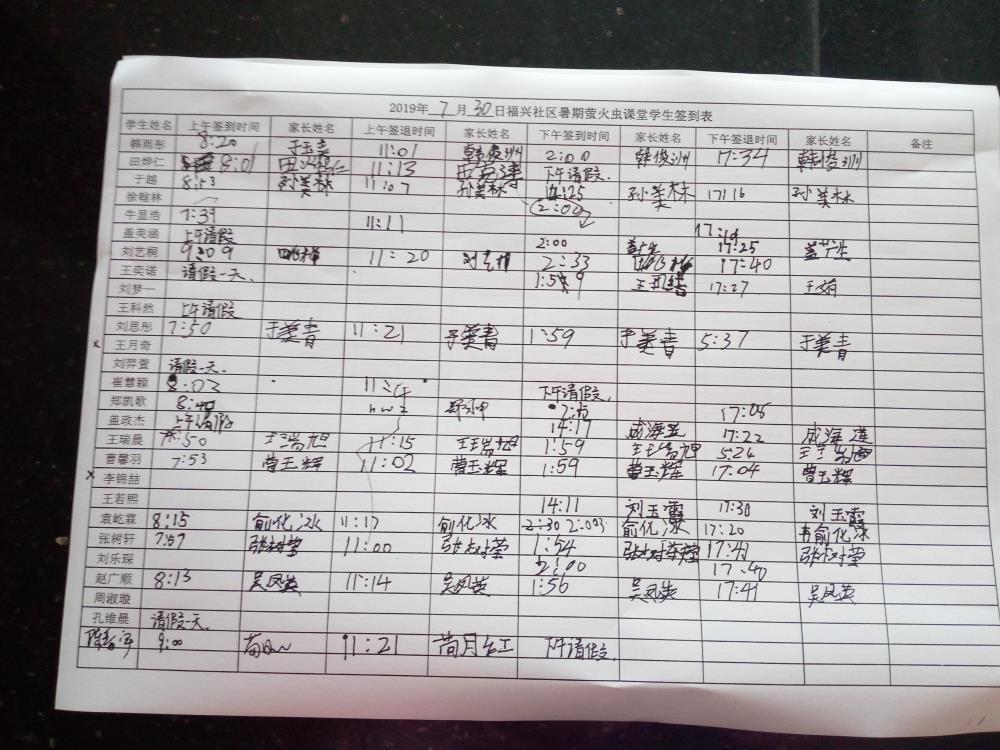 2019年 7 月 30 日福兴社区暑期萤火虫课堂学生签到表
学生姓名 上午签到时间 家长姓名 上午签退时间 家长姓名 下午签到时间 家长姓名 下午签退时间 家长姓名 备注
韩雨彤 8:20 于玉青 11:01 韩俊洲 2:00 韩俊洲 17:34 韩俊洲
田烨仁 8:01 11:13 下午请假.
于越 8:53 孙美林 11:07 孙美林 孙美林 17:16 孙美林
徐晗林 2:00
牛显浩 7:39 11:11
盖美涵 上午请假 2:00 17:25
刘艺桐 9:09 11:20 2:33 17:40
王奕诺 请假一天. 17:27 王娟
刘梦一
王科然 上午请假
刘思彤 7:50 于美青 11:21 于美青 1:59 于美青 5:37 于美青
x 王月奇
刘羿萱 请假一天.
崔慧颖 8:02 下午请假.
郑凯歌 17:05
盖政杰 上午请假 14:17 17:22 成海莲
王瑞晨 7:50 王瑞旭 11:15 王瑞旭 1:59 王瑞旭 5:26 王瑞旭
曹馨羽 7:53 曹玉辉 11:02 曹玉辉 1:59 曹玉辉 17:04 曹玉辉
x 李锦喆
王若熙 14:11 刘玉霞 17:30 刘玉霞
袁屹霖 8:15 俞化冰 11:17 俞化冰 2:30 俞化冰 17:20 俞化冰
张树轩 7:57 张树莹 11:00 张树莹 1:54 张树莹 17:41 张树莹
刘乐琛 2:00 17:40
赵广顺 8:13 吴凤英 11:14 吴凤英 1:56 吴凤英 17:41 吴凤英
周淑璇
孔维晨 请假一天.
9:00 11:21 下午请假.